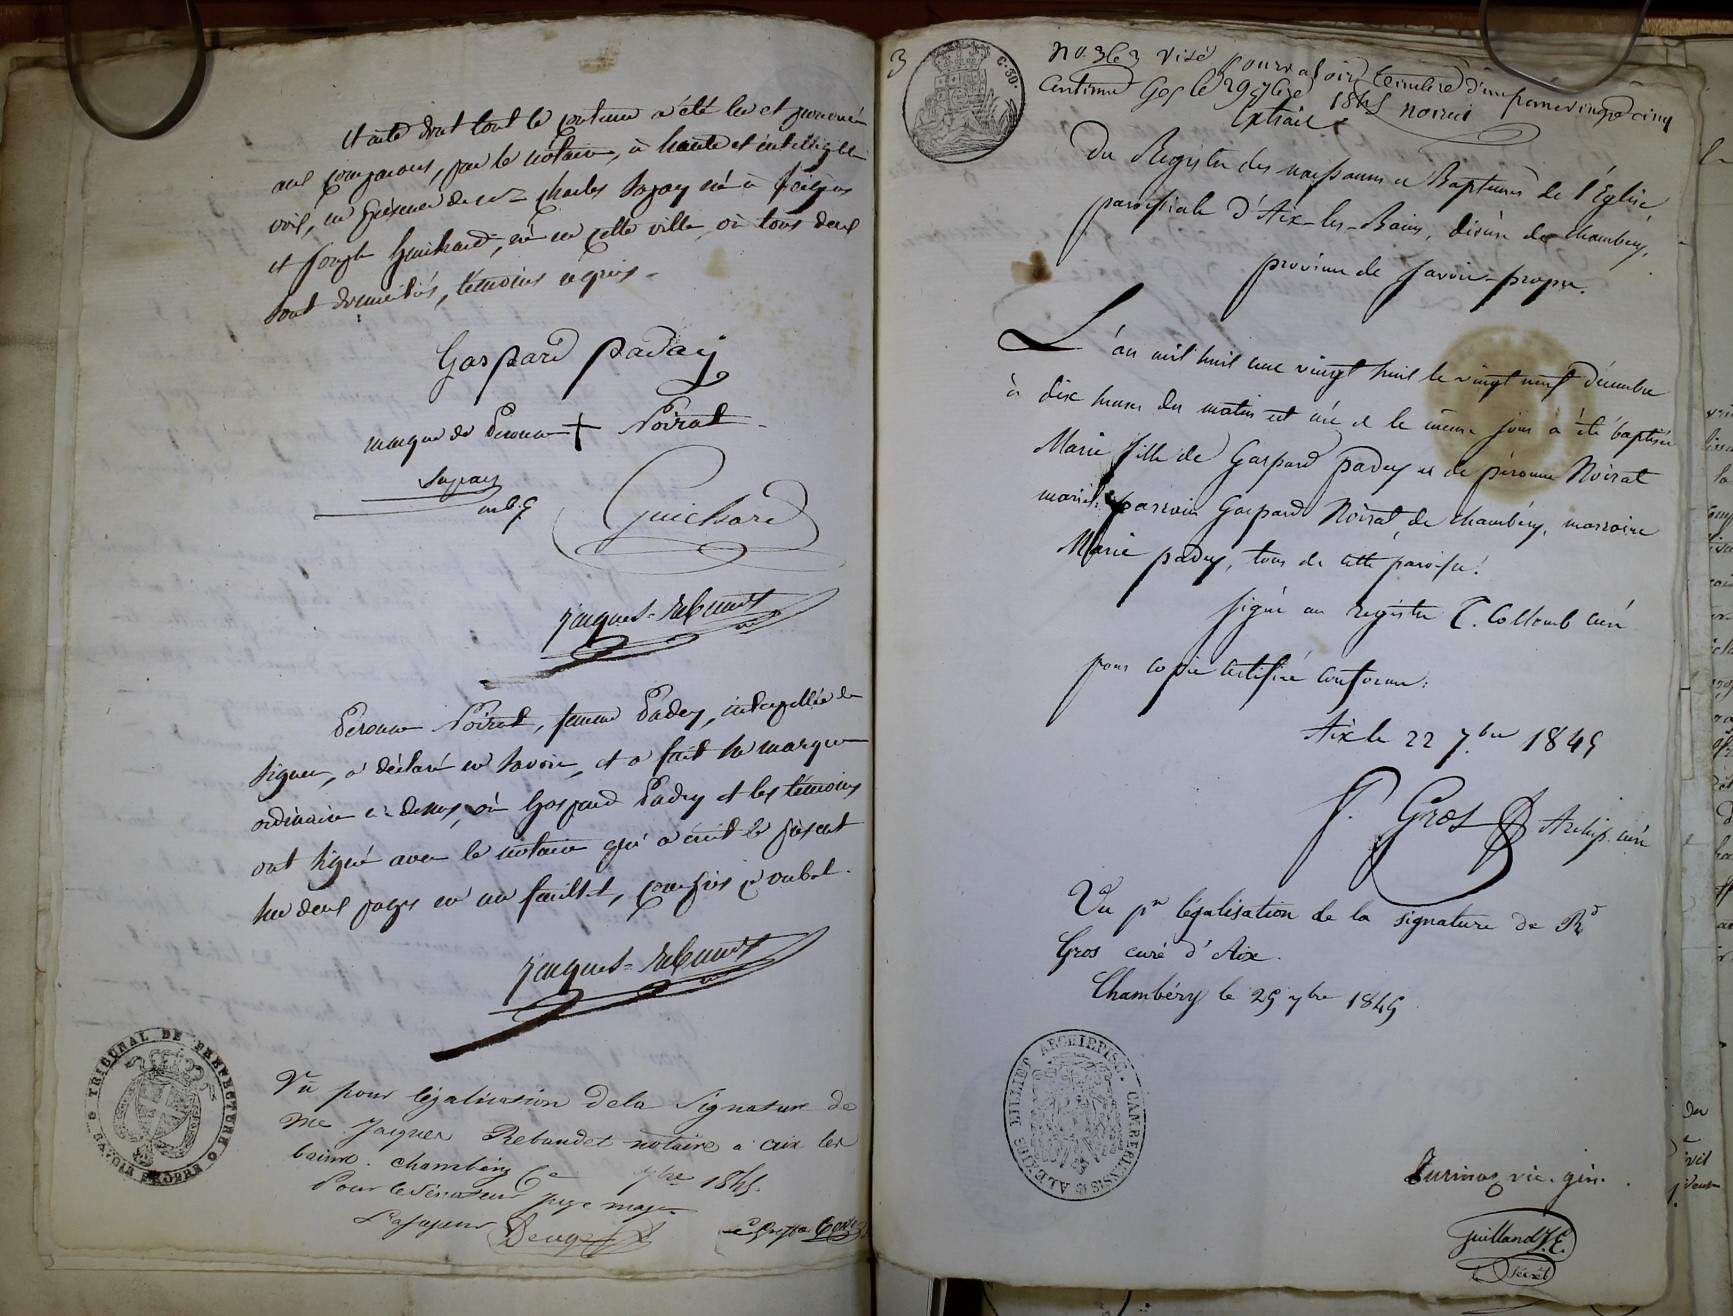 et acte dont tout le contenu a été lu et prononcé
aux comparans, par le notaire, à haute et intelligible
voix, en présence de Charles Sapay né à
et Joseph Guichard, né en cette ville, où tous deux
sont domiciliés, témoins requis.
Gaspard paday
marque de Peronne + Noirat
Sapay
Guichard
Jacques=Rebaudet
Peronne Noirat, femme Padey, interpellée de
signer, a déclaré ne savoir, et a fait sa marque
ordinaire ci-dessus, où Gaspard Padey et les témoins
ont signé avec le notaire qui a écrit le présent
sur deux pages en un feuillet, compris verbal.
Jacques=Rebaudet
TRIBUNAL DE PREFECTURE
SAVOIE PROPRE
Vu pour légalisation de la Signature de
Me Jacques Rebaudet notaire a aix les
bains. chambéry 7bre 1845.
Pour le Sénateur juge maje
L'assesseur
3
C. 30.
No. 363 Visé pour valoir timbre d'un franc vingt cinq
centimes le 29 7bre 1845 Noirai
Extrait
Du Registre des naissances et Baptèmes de l'Eglise
paroissiale d'Aix-les-Bains, diocèse de Chambéry,
province de Savoie-propre.
L'an mil huit cent vingt huit le vingt neuf décembre
à dix heures du matin est née et le même jour a été baptisée
Marie fille de Gaspard padey et de péronne Noirat
mariés: parrain Gaspard Noirat de Chambéry, marraine
Marie padey, tous de cette paroisse.
signé au registre C. Collomb curé
pour copie certifiée conforme:
Aix le 22 7.bre 1845
J. Gros Archip. curé
Vu pr légalisation de la signature de Rd
Gros curé d'Aix.
Chambéry le 25 7bre 1845
ALEXIUS BILLIET ARCHIEPISC. CAMBERIENSIS
Turinaz vic. gén.
Guilland J. E.
Sécrét